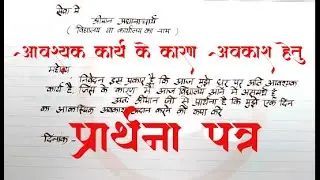 सेवा में
श्रीमान प्रधानाचार्य
( विद्यालय या कार्यालय का नाम )
-आवश्यक कार्य के कारण -अवकाश हेतु
महोदय
निवेदन इस प्रकार है कि आज मुझे घर पर अति आवश्यक
कार्य है जिस के कारण मैं आज विद्यालय आने में असमर्थ हूं
अतः श्रीमान जी से प्रार्थना है कि मुझे एक दिन
का आकस्मिक अवकाश प्रदान करने की कृपा करें
दिनांक-
प्रार्थना पत्र